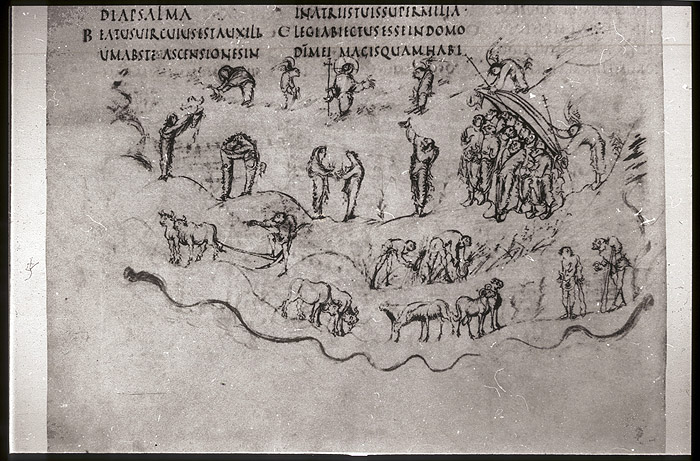 DIAPSALMA
BEATUSUIRCUIUSESTAUXILI
UMABSTE·ASCENSIONESIN
INATRIISTUISSUPERMILIA·
ELEGIABIECTUSESSEINDOMO
DIMEI MAGISQUAMHABI